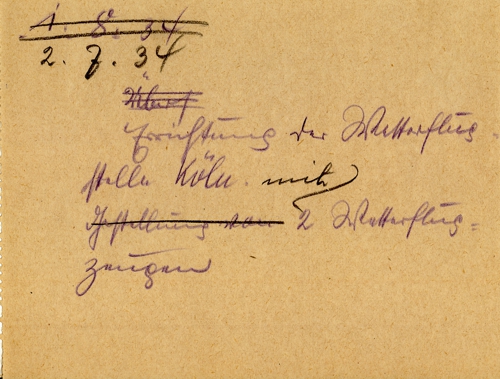 1. 8. 34
2. 7. 34
Errichtung der Wetterflug-
stelle Köln. mit
Gestellung von 2 Wetterflug=
zeugen